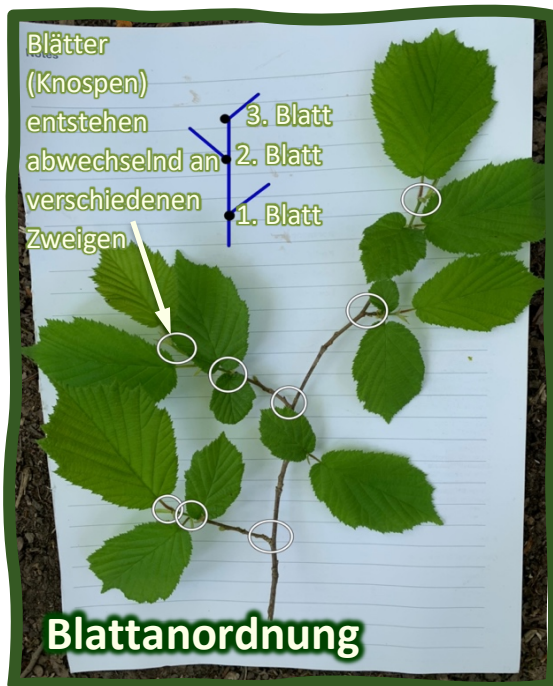 Blätter
(Knospen)
entstehen
abwechselnd an
verschiedenen
Zweigen
3. Blatt
2. Blatt
1. Blatt
Blattanordnung